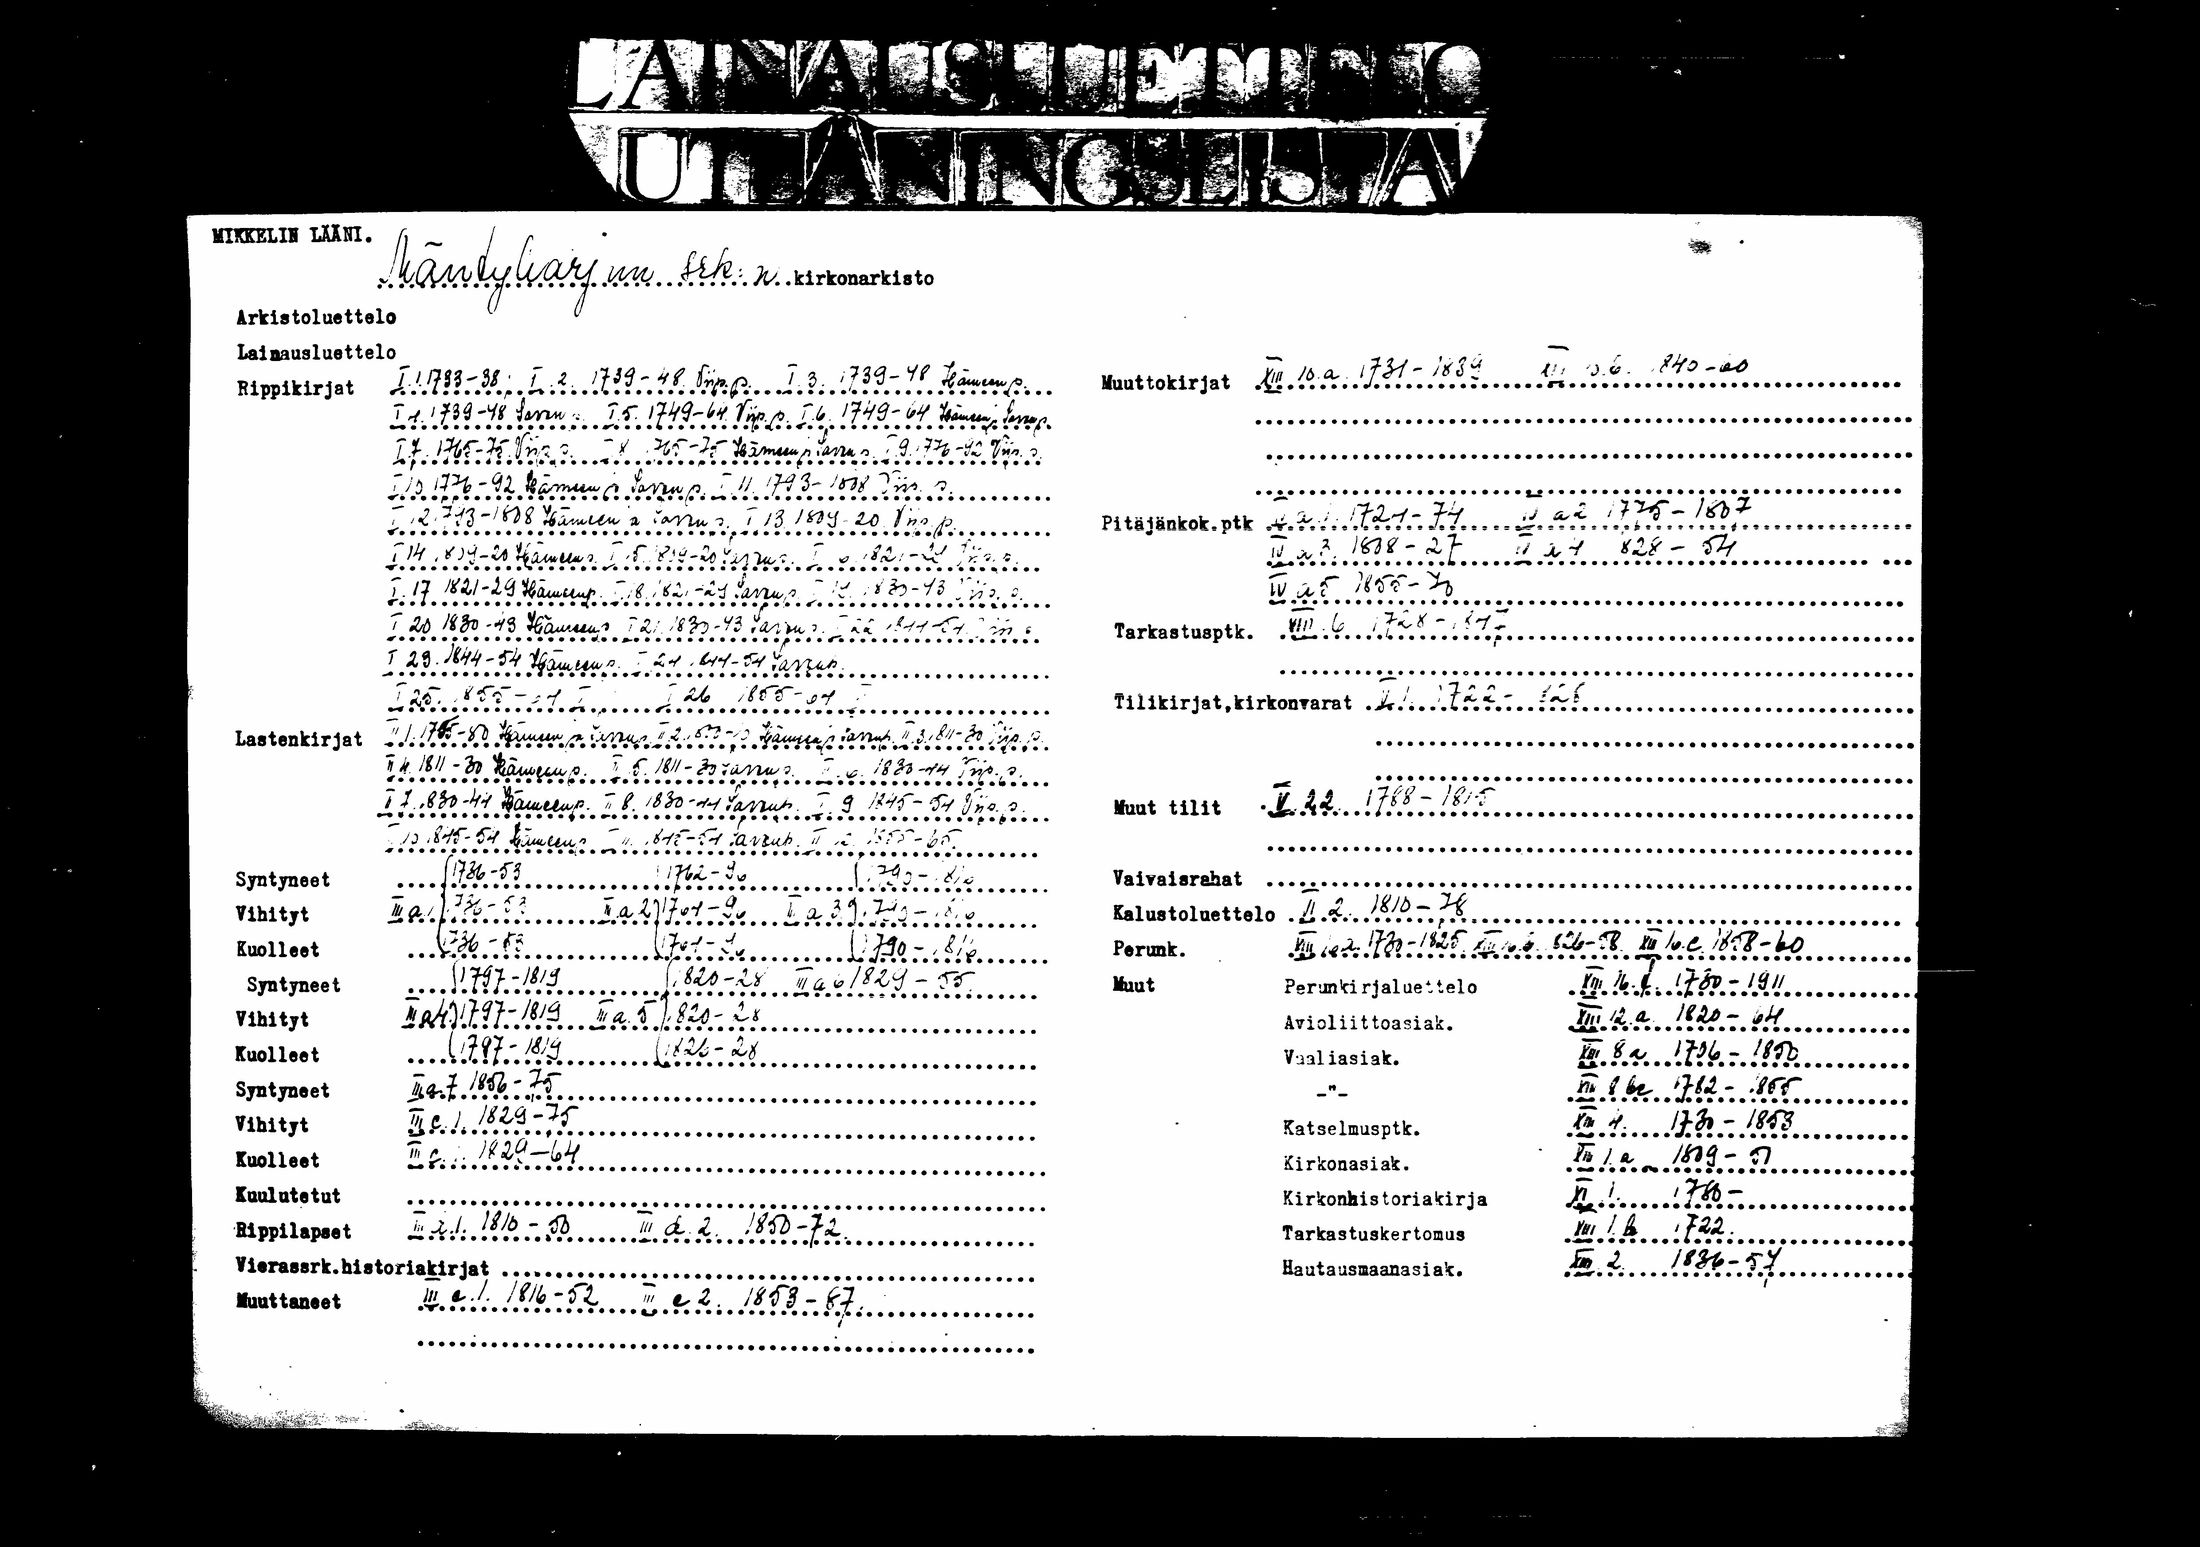 LAINAUSLUETTELO
UTLÅNINGSLISTA
MIKKELIN LÄÄNI.
Mäntyharjun srk:n kirkonarkisto
Arkistoluettelo
Lainausluettelo
Rippikirjat I.1.1733-38; I.2. 1739-48. Viip.p. I.3. 1739-48 Hämeen p.
I.4. 1739-48 Savon p. I.5. 1749-64 Viip.p. I.6. 1749-64 Hämeen ja Savon p.
I.7. 1765-75 Viip.p. I.8. 1765-75 Hämeen ja Savon p. I.9. 1776-92 Viip.p.
I.10 1776-92 Hämeen ja Savon p. I.11. 1793-1808 Viip.p.
I.12. 1793-1808 Hämeen ja Savon p. I.13. 1809-20. Viip.p.
I.14. 1809-20 Hämeen p. I.15. 1809-20 Savon p. I.16. 1821-29 Viip.p.
I.17 1821-29 Hämeen p. I.18. 1821-29 Savon p. I.19. 1830-43 Viip.p.
I 20 1830-43 Hämeen p. I 21. 1830-43 Savon p. I 22 1844-54. Viip.p.
I 23. 1844-54 Hämeen p. I 24. 1844-54 Savon p.
I 25. 1855-64 I I 26 1855-64
Lastenkirjat II 1. 1765-80 Hämeen ja Savon p. II 2. Hämeen ja Savon p. II 3. 1811-30 Viip.p.
II 4. 1811-30 Hämeen p. II 5. 1811-30 Savon p. II 6. 1830-44 Viip.p.
II 7. 1830-44 Hämeen p. II 8. 1830-44 Savon p. II 9 1845-54 Viip.p.
II 10 1845-54 Hämeen p. II 11. 1845-54 Savon p. II 12. 1855-65.
Syntyneet 1736-53 1762-90 1790-1816
Vihityt III a 1. 1736-53 II a 2 1761-90 II a 3 1790-1816
Kuolleet 1736-53 1761-90 1790-1816
Syntyneet 1797-1819 1820-28 III a 6 1829-55.
Vihityt III a 4 1797-1819 III a. 5 1820-28
Kuolleet 1797-1819 1820-28
Syntyneet III a.7 1856-75
Vihityt III c. 1. 1829-75
Kuolleet III 1829-64
Kuulutetut
Rippilapset III d.1. 1810-50 III d. 2. 1850-72.
Vierassrk.historiakirjat
Muuttaneet III e.1. 1816-52 III e 2. 1853-87.
Muuttokirjat XIII 10.a. 1731-1839 XIII 10.b. 1840-60
Pitäjänkok.ptk IV a 1. 1724-74 IV a 2 1775-1807
IV a 3. 1808-27 IV a 4 1828-54
IV a 5 1855-70
Tarkastusptk. VIII.6 1728-1847
Tilikirjat,kirkonvarat V.1. 1722-1826
Muut tilit V.22. 1788-1815
Vaivaisrahat
Kalustoluettelo II.2. 1810-78
Perunk. XIII 16.a. 1730-1825. XIII 16.b. 1826-58. XIII 16.c. 1858-60
Muut Perunkirjaluettelo XIII 16.d. 1730-1911
Avioliittoasiak. XIII 12.a. 1820-64
Vaaliasiak. XIII 8 a 1796-1850
-"- XIII 8 bc 1782-1855
Katselmusptk. XIII 4. 1730-1853
Kirkonasiak. XIII 1.a 1809-51
Kirkonhistoriakirja XI 1. 1780-
Tarkastuskertomus XIII 1.b 1722.
Hautausmaanasiak. XIII 2. 1836-57